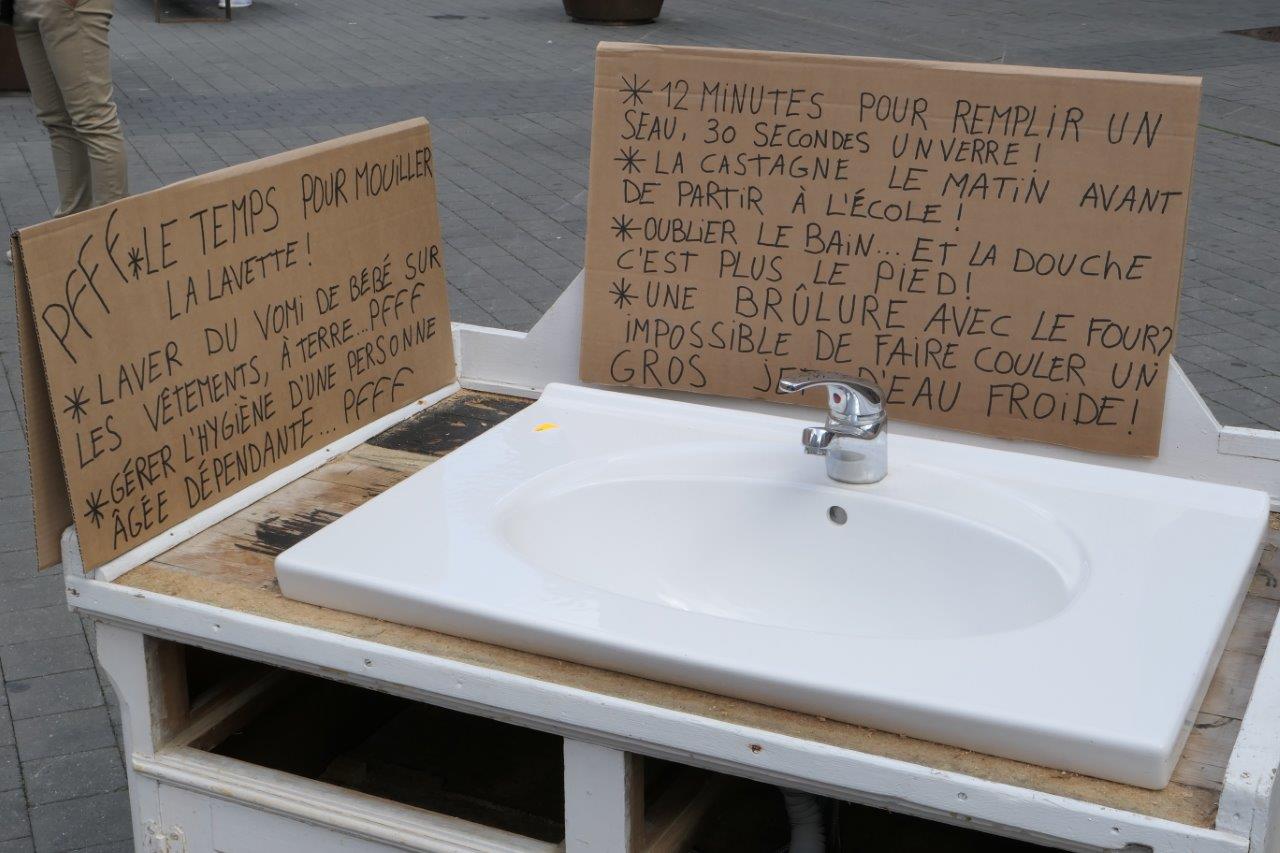 PFFF *LE TEMPS POUR MOUILLER
LA LAVETTE !
*LAVER DU VOMI DE BÉBÉ SUR
LES VÊTEMENTS, À TERRE...PFFF
*GÉRER L'HYGIÈNE D'UNE PERSONNE
ÂGÉE DÉPENDANTE... PFFF
* 12 MINUTES POUR REMPLIR UN
SEAU, 30 SECONDES UN VERRE !
* LA CASTAGNE LE MATIN AVANT
DE PARTIR À L'ÉCOLE !
*OUBLIER LE BAIN... ET LA DOUCHE
C'EST PLUS LE PIED!
*UNE BRÛLURE AVEC LE FOUR?
IMPOSSIBLE DE FAIRE COULER UN
GROS D'EAU FROIDE!